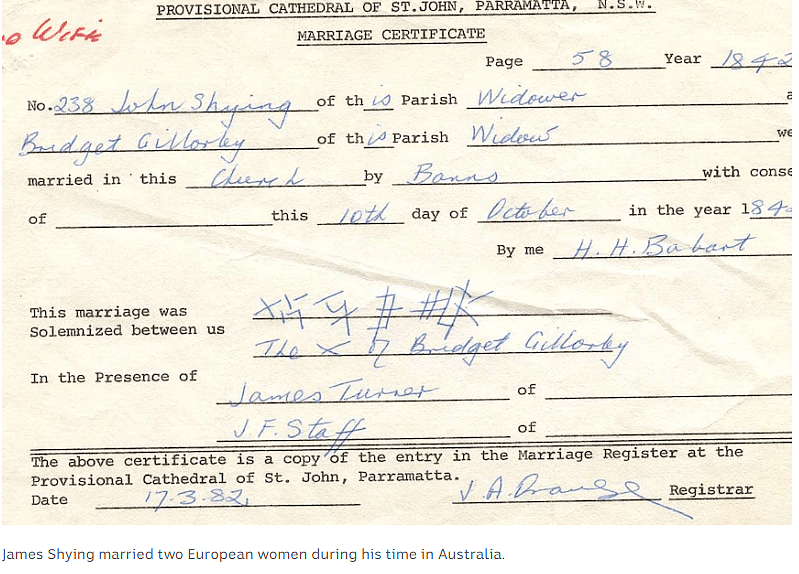 PROVISIONAL CATHEDRAL OF ST.JOHN, PARRAMATTA, N.S.W.
MARRIAGE CERTIFICATE
Wife
Page 58 Year 1842
No. 238 John Shying of this Parish Widower a
Bridget Gillorley of this Parish Widow we
married in this Church by Banns with conse
of this 10th day of October in the year 184
By me H. H. Bobart
This marriage was
Solemnized between us
The X of Bridget Gillorley
In the Presence of
James Turner of
J.F. Staff of
The above certificate is a copy of the entry in the Marriage Register at the
Provisional Cathedral of St. John, Parramatta.
Date 17.3.82. J. A. Registrar
James Shying married two European women during his time in Australia.